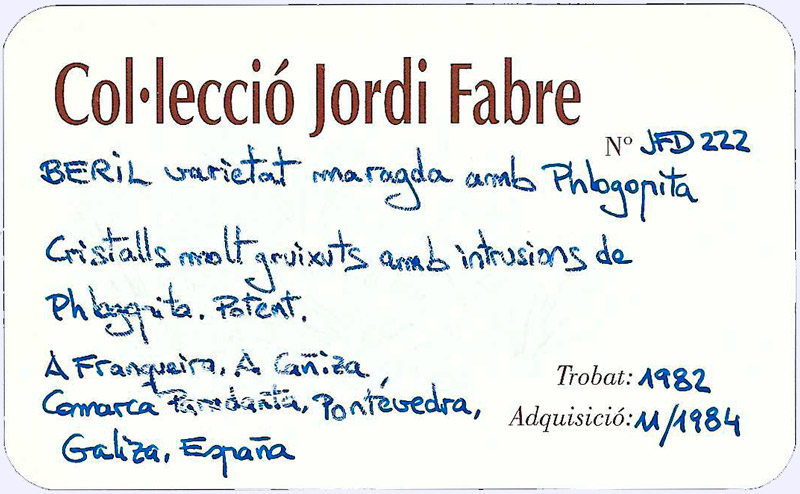 Col·lecció Jordi Fabre
Nº JFD 222
BERIL varietat maragda amb Phlogopita
Cristalls molt gruixuts amb intrusions de
Phlogopita. Potent.
A Franqueira, A Cañiza,
Comarca Paradanta, Pontevedra,
Galiza, España
Trobat: 1982
Adquisició: 11/1984